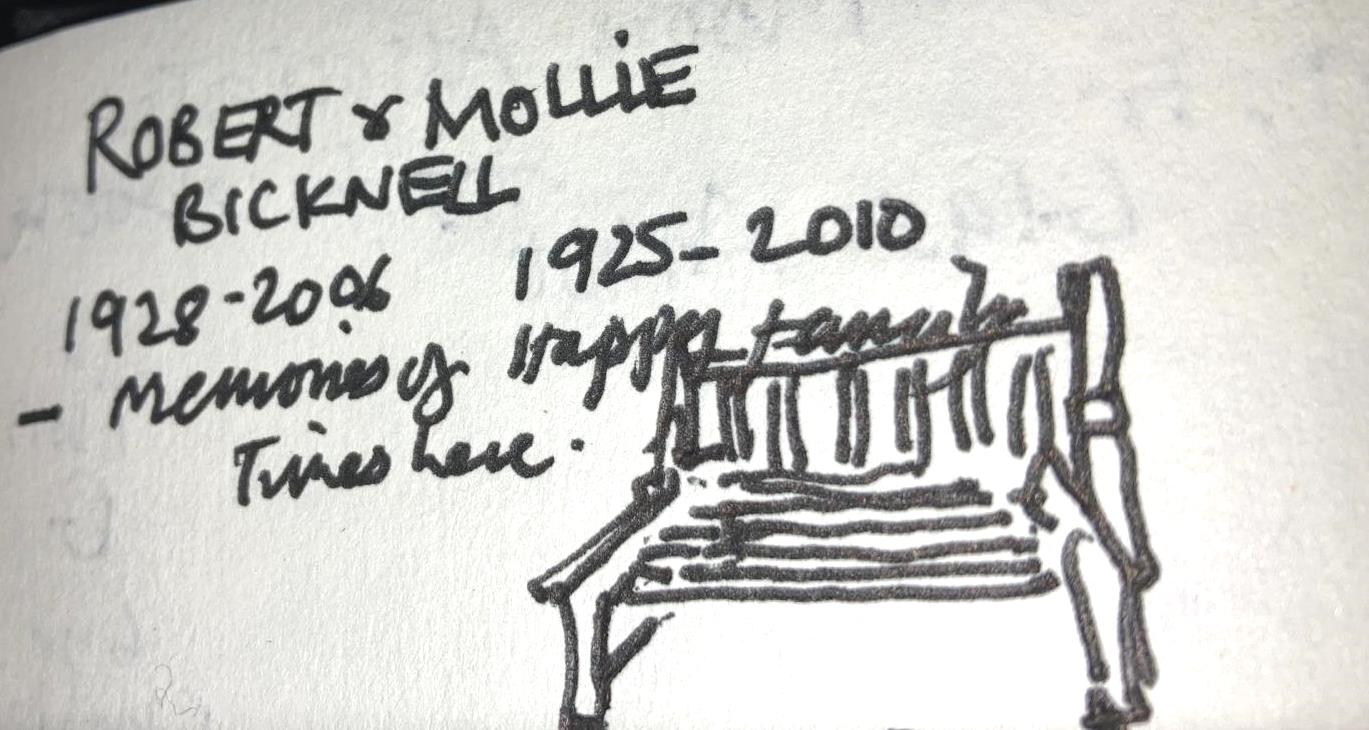 ROBERT & MOLLIE
BICKNELL
1928-2006 1925-2010
- Memories of Happy Family
Times here.